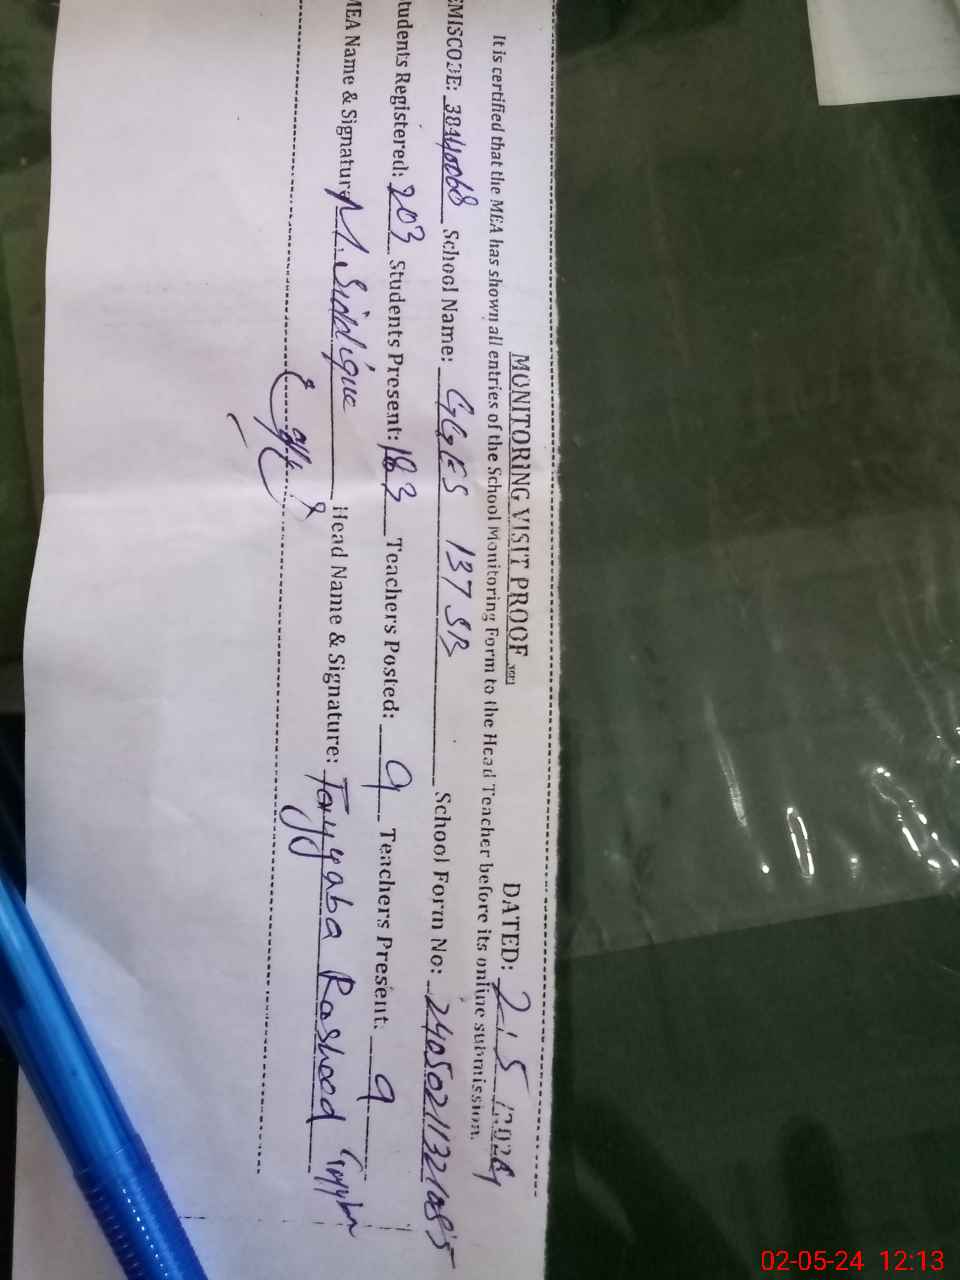 MONITORING VISIT PROOF DATED: 2.5.2024
It is certified that the MEA has shown all entries of the School Monitoring Form to the Head Teacher before its online submission.
EMISCODE: 38440068 School Name: GGES 137 SB School Form No:
tudents Registered: 203 Students Present: 183 Teachers Posted: 9 Teachers Present: 9
MEA Name & Signature M. Siddique Head Name & Signature: Tayyaba Rasheed
02-05-24 12:13